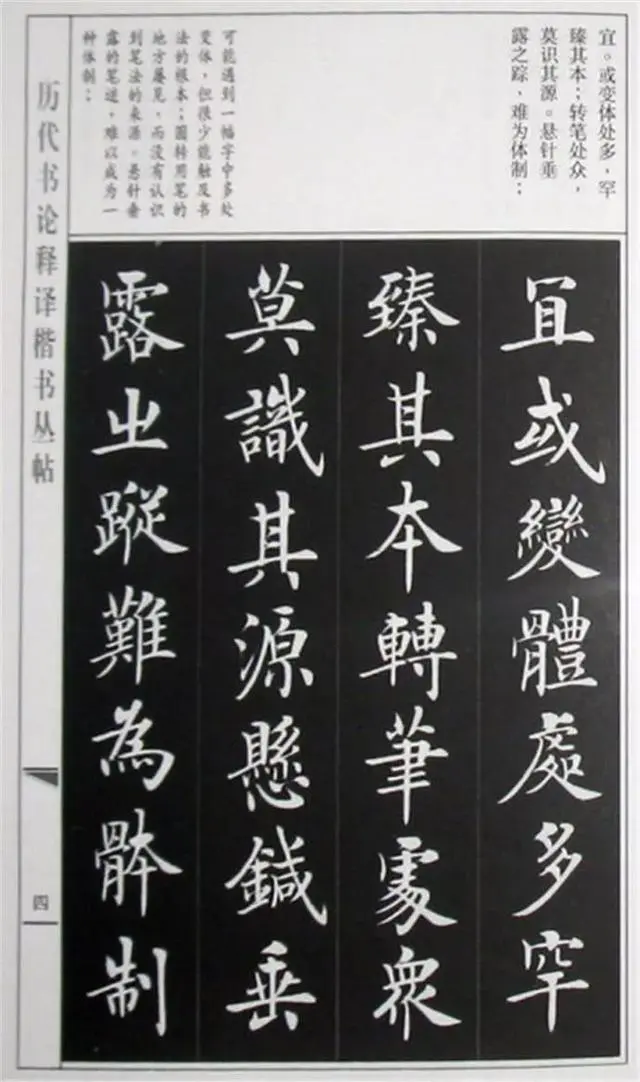 宜。或变体处多，罕
臻其本；转笔处众，
莫识其源。悬针垂
露之踪，难为体制；
可能遇到一幅字中多处
变体，但很少能触及书
法的根本；圆转用笔的
地方屡见，而没有认识
到笔法的来源。悬针垂
露的笔迹，难以成为一
种体制；
冝或變體處多罕
臻其本轉筆處衆
莫識其源懸鍼垂
露之蹤難為骵制
历代书论释译楷书丛帖
四